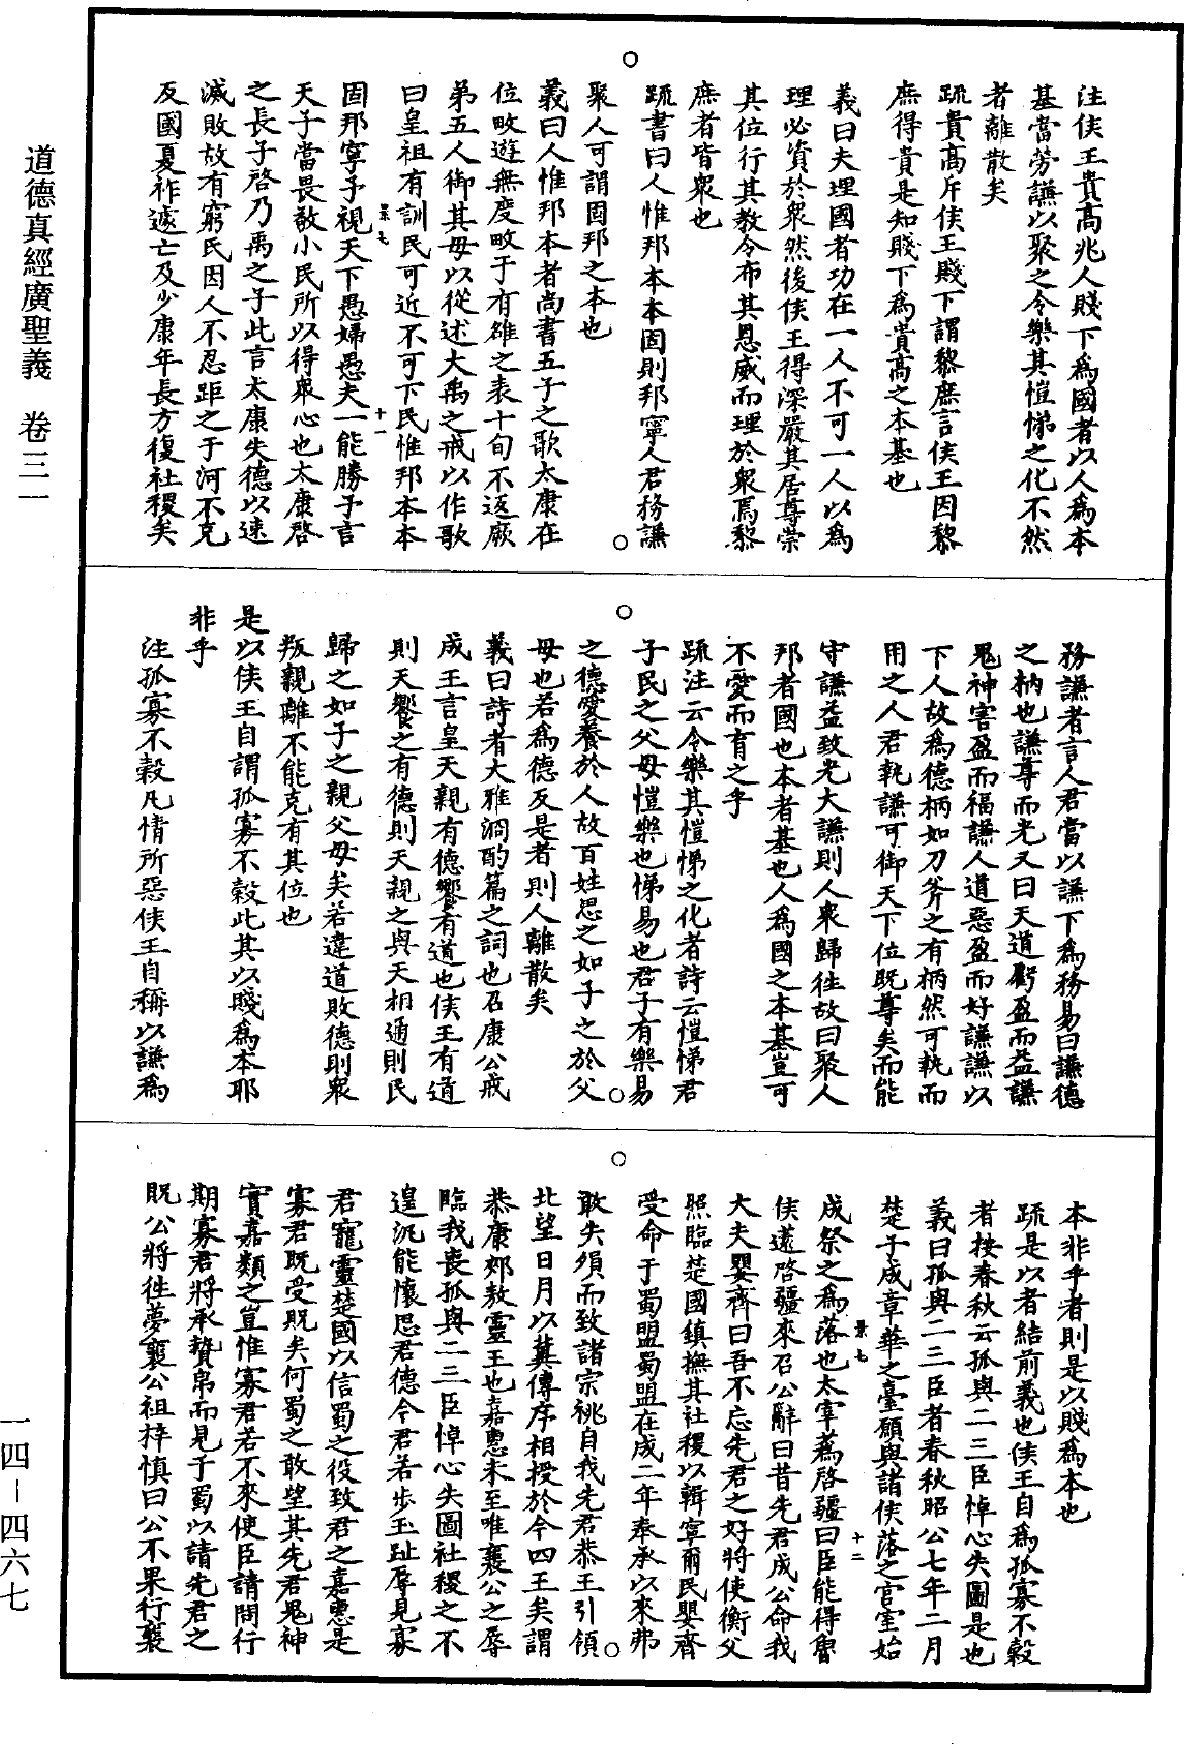 注侯王貴高兆人賤下爲國者以人爲本
基當勞謙以聚之令樂其愷悌之化不然
者離散矣
疏貴高斥侯王賤下謂黎庶言侯王因黎
庶得貴是知賤下爲貴高之本基也
義曰夫理國者功在一人不可一人以爲
理必資於衆然後侯王得深嚴其居尊崇
其位行其教令布其恩威而理於衆焉黎
庶者皆衆也
疏書曰人惟邦本本固則邦寧人君務謙
聚人可謂固邦之本也
義曰人惟邦本者尚書五子之歌太康在
位畋遊無度畋于有雒之表十旬不返厥
弟五人御其母以從述大禹之戒以作歌
曰皇祖有訓民可近不可下民惟邦本本
固邦寧予視天下愚婦愚夫一能勝予言
天子當畏敬小民所以得衆心也太康啓
之長子啓乃禹之子此言太康失德以速
滅敗故有窮民因人不忍距之于河不克
反國夏祚遽亡及少康年長方復社稷矣
務謙者言人君當以謙下爲務易曰謙德
之柄也謙尊而光又曰天道虧盈而益謙
鬼神害盈而福謙人道惡盈而好謙謙以
下人故爲德柄如刀斧之有柄然可執而
用之人君執謙可御天下位既尊矣而能
守謙益致光大謙則人衆歸往故曰聚人
邦者國也本者基也人爲國之本基豈可
不愛而育之乎
疏注云令樂其愷悌之化者詩云愷悌君
子民之父母愷樂也悌易也君子有樂易
之德愛養於人故百姓思之如子之於父
母也若爲德反是者則人離散矣
義曰詩者大雅泂酌篇之詞也召康公戒
成王言皇天親有德饗有道也侯王有道
則天饗之有德則天親之與天相通則民
歸之如子之親父母矣若違道敗德則衆
叛親離不能克有其位也
是以侯王自謂孤寡不穀此其以賤爲本耶
非乎
注孤寡不穀凡情所惡侯王自稱以謙爲
本非乎者則是以賤爲本也
疏是以者結前義也侯王自爲孤寡不穀
者按春秋云孤與二三臣悼心失圖是也
義曰孤與二三臣者春秋昭公七年二月
楚子成章華之臺願與諸侯落之宮室始
成祭之爲落也太宰薳啓疆曰臣能得魯
侯薳啓疆來召公辭曰昔先君成公命我
大夫嬰齊曰吾不忘先君之好將使衡父
照臨楚國鎮撫其社稷以輯寧爾民嬰齊
受命于蜀盟蜀盟在成二年奉承以來弗
敢失殞而致諸宗祧自我先君恭王引領
北望日月以冀傳序相授於今四王矣謂
恭康郟敖靈王也嘉惠未至唯襄公之辱
臨我喪孤與二三臣悼心失圖社稷之不
遑況能懷思君德今君若步玉趾辱見寡
君寵靈楚國以信蜀之役致君之嘉惠是
寡君既受貺矣何蜀之敢望其先君鬼神
實嘉頼之豈惟寡君若不來使臣請問行
期寡君將承贄帛而見于蜀以請先君之
貺公將徃夢襄公祖梓慎曰公不果行襄
景七
十一
景七
十二
道德真經廣聖義　卷三一
一四－四六七